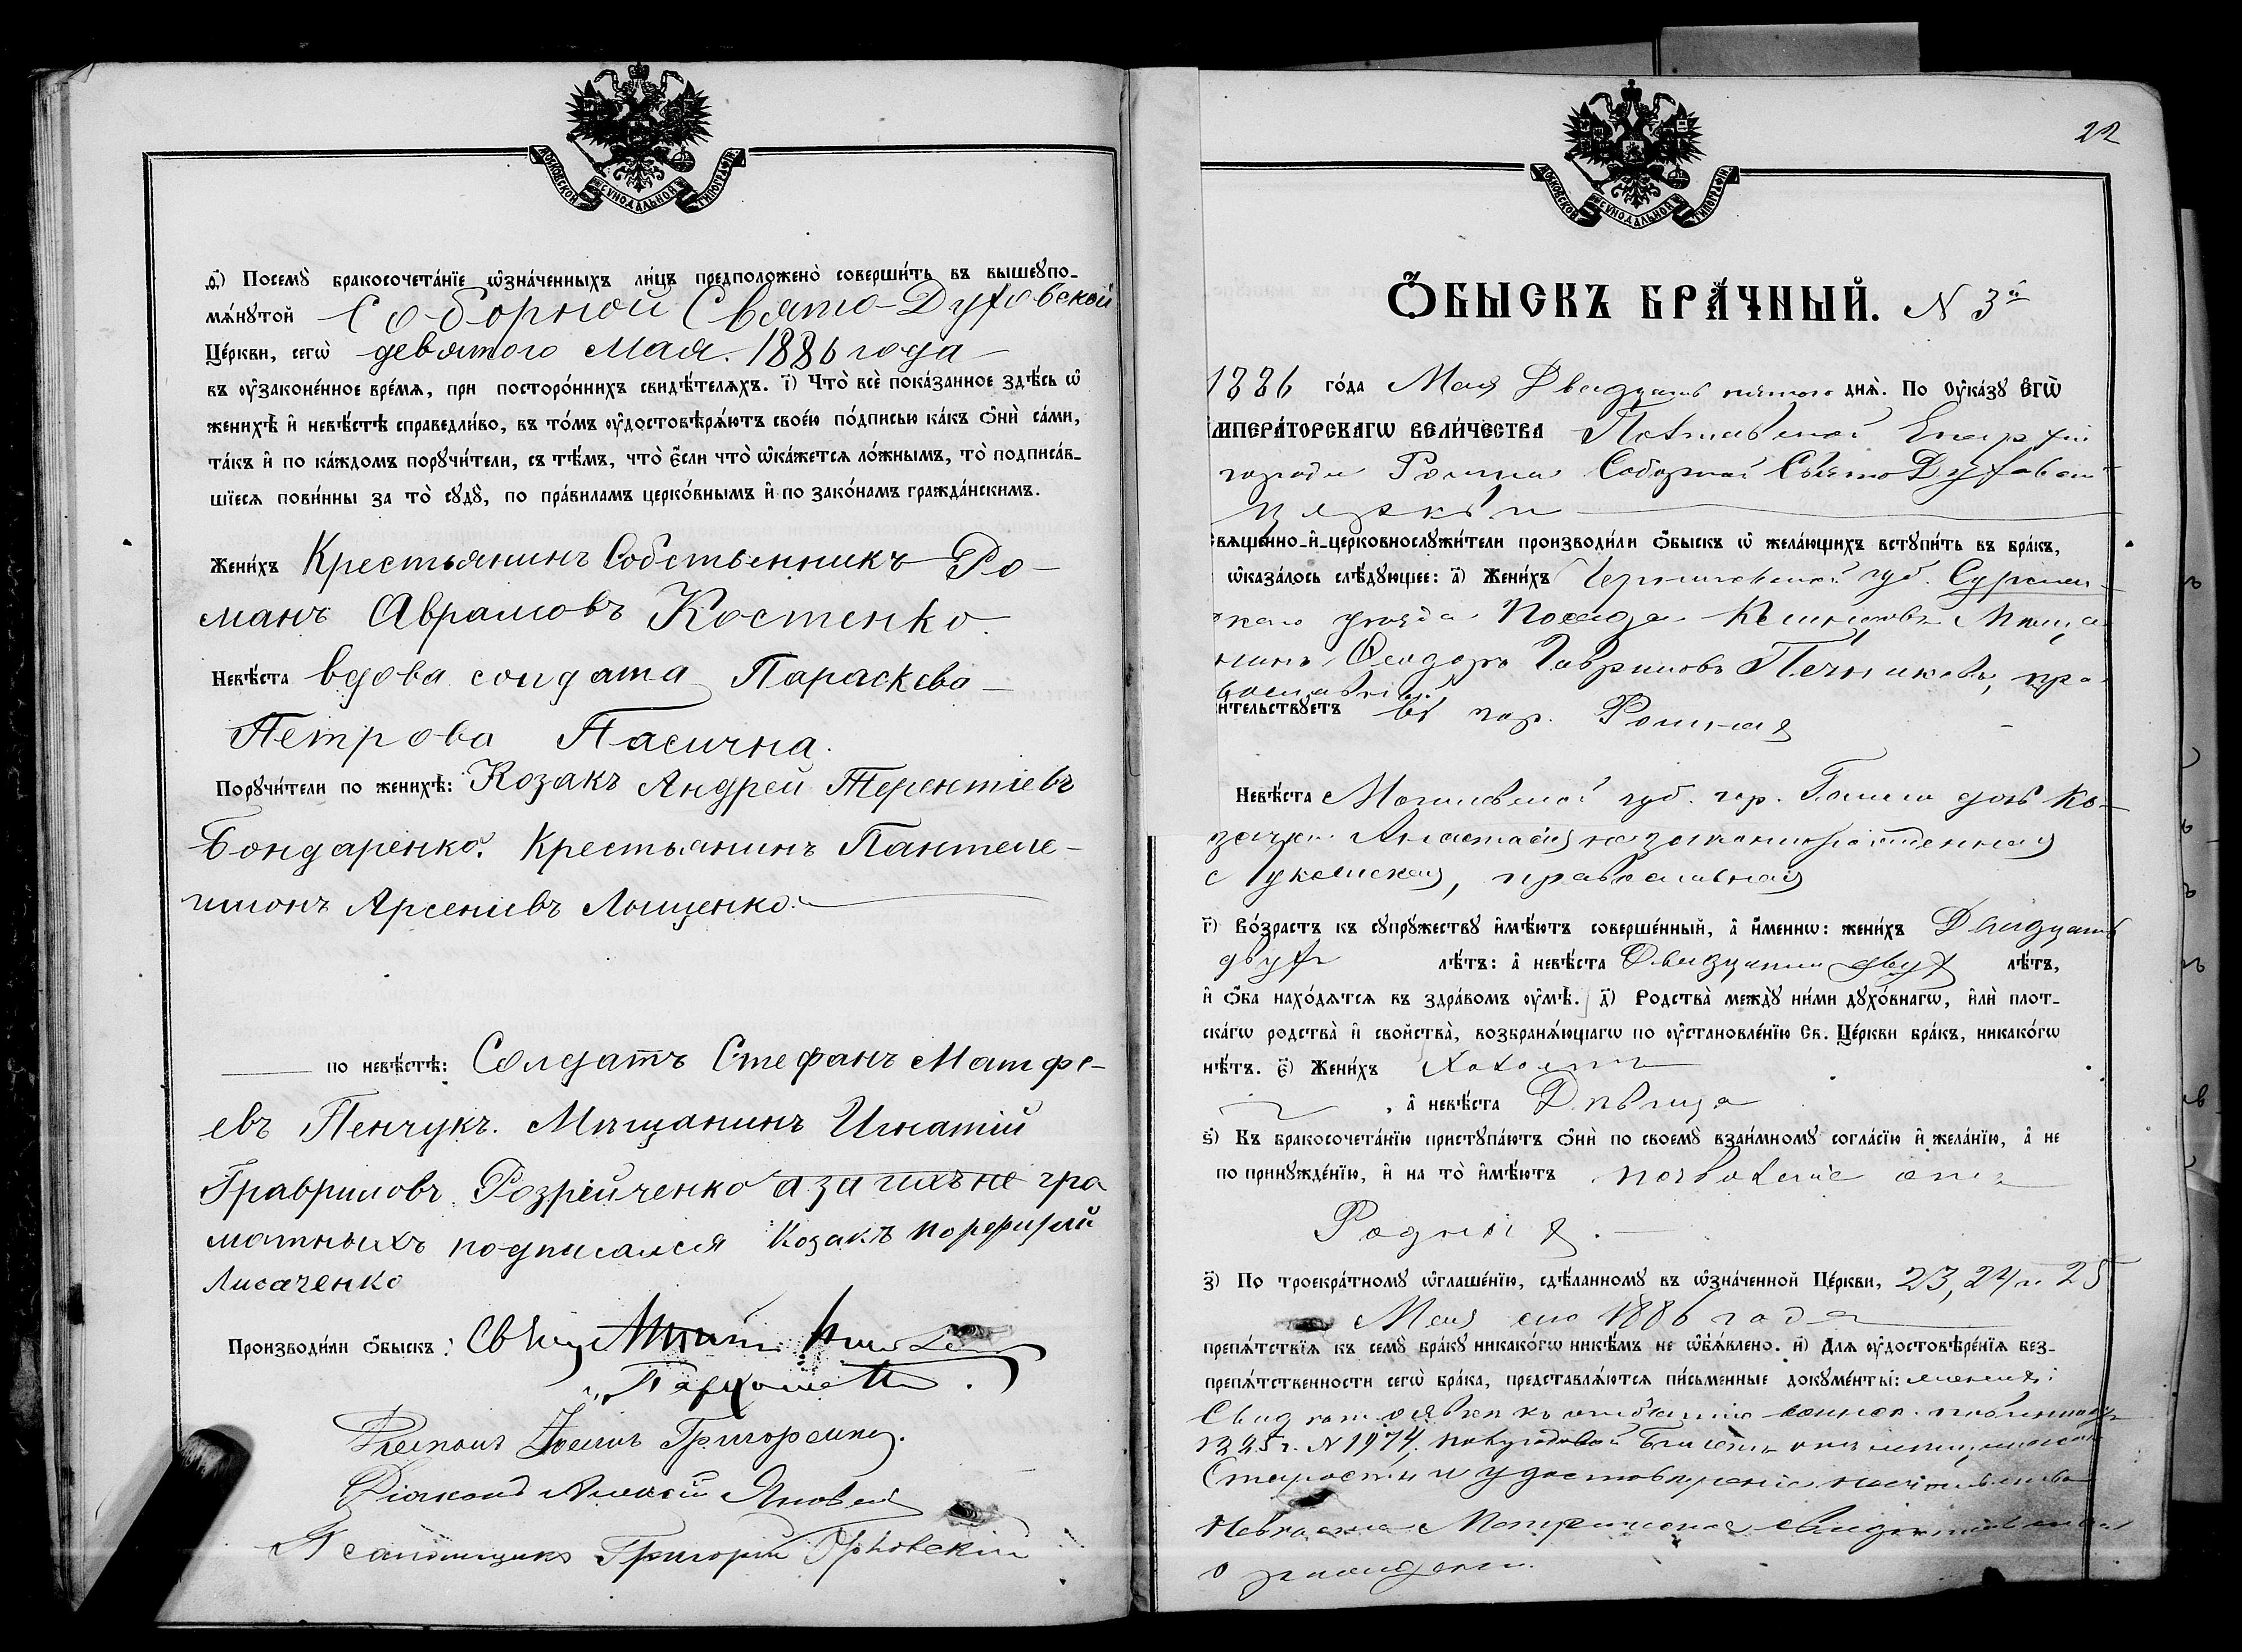 МОСКОВСКОЙ СѴНОДАЛЬНОЙ ТИПОГРАФІИ
д҃) Посемꙋ̀ бракосочета́нїе ѡ҆зна́ченныхъ ли́цъ предположено̀ соверши́ть въ вышеꙋпо-
мѧ́нꙋтой Соборной Свято-Духовской
Це́ркви, сегѡ̀ девятого Мая. 1886 года
въ ᲂу҆законе́нное вре́мѧ, при посторо́ннихъ свидѣ́телѧхъ. і҃) Что̀ всѐ пока́занное здѣ́сь ѡ҆
женихѣ̀ и҆ невѣ́стѣ справедли́во, въ то́мъ ᲂу҆достовѣрѧ́ютъ свое́ю по́дписью ка́къ ѻ҆нѝ са́ми,
та́къ и҆ по ка́ждомъ порꙋчи́тели, съ тѣ́мъ, что̀ є҆́сли что̀ ѡ҆ка́жетсѧ ло́жнымъ, то̀ подписа́в-
шїесѧ пови́нны за то̀ сꙋдꙋ̀, по пра́виламъ церко́внымъ и҆ по зако́намъ гражда́нскимъ.
Жени́хъ Крестьянинъ Собственникъ Ро-
манъ Аврамовъ Костенко.
Невѣ́ста вдова солдата Параскева
Петрова Пасична.
Порꙋчи́тели по женихѣ̀: Козакъ Андрей Терентіевъ
Бондаренко. Крестьянинъ Пантеле-
имонъ Арсеніевъ Лощенко.
по невѣ́стѣ: Солдатъ Стефанъ Матфе-
евъ Пенчукъ. Мѣщанинъ Игнатій
Гравриловъ Розрейченко а за ихъ не гра
мотныхъ подписался Козакъ Порфирій
Лисаченко
Производи́ли ѻ҆́быскъ: Свящ
Діаконъ Григор
Діаконъ Алексій Яновскій
Псаломщикъ Григорій
22
МОСКОВСКОЙ СѴНОДАЛЬНОЙ ТИПОГРАФІИ
Ѻ҆́БЫСКЪ БРА́ЧНЫЙ. N 3й
1886 го́да Мая Двадцать пятого днѧ̀. По ᲂу҆ка́зꙋ Є҆гѡ̀
ИМПЕРА́ТОРСКАГѠ ВЕЛИ́ЧЕСТВА Полтавской Епархіи
города Ромна Соборной Свято Духовской
церкви
свѧще́нно-и҆-церковнослꙋжи́тели производи́ли ѻ҆́быскъ ѡ҆ жела́ющихъ встꙋпи́ть въ бра́къ,
ѡ҆каза́лось слѣ́дꙋющее: а҃) Жени́хъ Черниговской губ. Сураж-
скаго уѣзда Посада Клинцовъ Мѣща
нинъ Ѳеодоръ Гавриловъ Печниковъ, пра
вославный
и́тельствꙋетъ въ гор. Ромнахъ
Невѣ́ста Могилевской губ. гор. Гомеля дочь Ко-
зачки Анастасія незаконнорожденная
Лукомская, православная
г҃) Во́зрастъ къ сꙋпрꙋ́жествꙋ и҆мѣ́ютъ соверше́нный, а҆ и҆́меннѡ: жени́хъ Двадцать
двухъ лѣ́тъ: а҆ невѣ́ста Двадцати двух лѣ́тъ,
и҆ ѻ҆́ба нахо́дѧтсѧ въ здра́вомъ ᲂу҆мѣ̀. д҃) Родства̀ междꙋ̀ ни́ми дꙋхо́внагѡ, и҆лѝ плот-
ска́гѡ родства̀ и҆ сво́йства̀, возбранѧ́ющагѡ по ᲂу҆становле́нїю Св. Це́ркви бра́къ, никако́гѡ
нѣ́тъ. є҃) Жени́хъ Холостъ
, а҆ невѣ́ста Дѣвица
ѕ҃) Къ бракосочета́нїю пристꙋпа́ютъ ѻ҆нѝ по своемꙋ̀ взаи́мномꙋ согла́сїю и҆ жела́нїю, а҆ не
по принꙋжде́нїю, и҆ на то̀ и҆мѣ́ютъ позволеніе отъ
Родныхъ.
з҃) По троекра́тномꙋ ѡ҆глаше́нїю, сдѣ́ланномꙋ въ ѡ҆зна́ченной Це́ркви, 23, 24 и 25
Мая сего 1886 года
препѧ́тствїѧ къ семꙋ̀ бра́кꙋ никако́гѡ никѣ́мъ не ѡ҆б̾ѧ́влено. и҃) Длѧ ᲂу҆достовѣре́нїѧ без-
препѧ́тственности сегѡ̀ бра́ка, представлѧ́ютсѧ пи́сьменные докꙋме́нты: жениха:
Свид. о явкѣ къ отбыванію воинск. повинности
N 1974. полугодовой билетъ отъ мѣщанскаго
Старосты и удостовѣреніе
Невѣста Метрическое свидѣтельство
о рожденіи.